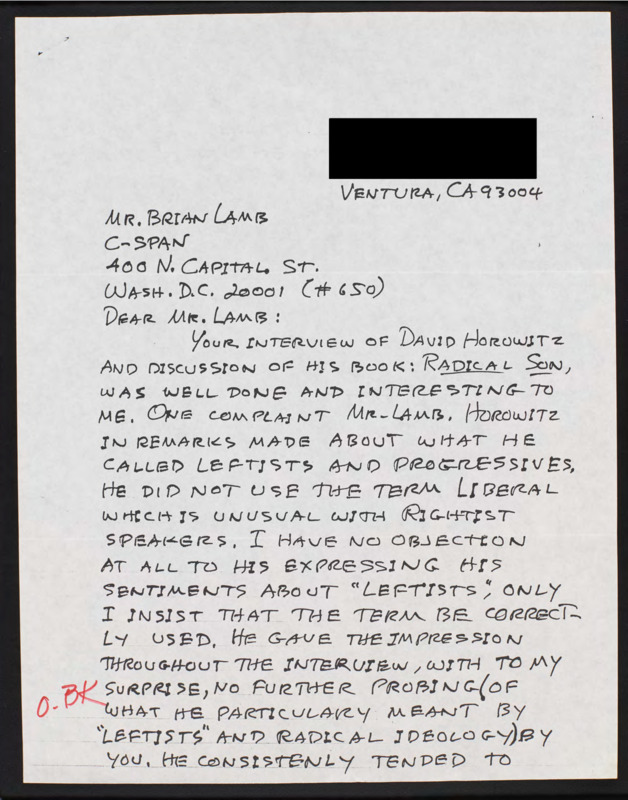 VENTURA, CA 93004
MR. BRIAN LAMB
C-SPAN
400 N. CAPITAL ST.
WASH. D.C. 20001 (#650)
DEAR MR. LAMB:
YOUR INTERVIEW OF DAVID HOROWITZ
AND DISCUSSION OF HIS BOOK: RADICAL SON,
WAS WELL DONE AND INTERESTING TO
ME. ONE COMPLAINT MR. LAMB. HOROWITZ
IN REMARKS MADE ABOUT WHAT HE
CALLED LEFTISTS AND PROGRESSIVES.
HE DID NOT USE THE TERM LIBERAL
WHICH IS UNUSUAL WITH RIGHTIST
SPEAKERS. I HAVE NO OBJECTION
AT ALL TO HIS EXPRESSING HIS
SENTIMENTS ABOUT "LEFTISTS", ONLY
I INSIST THAT THE TERM BE CORRECT-
LY USED. HE GAVE THE IMPRESSION
THROUGHOUT THE INTERVIEW, WITH TO MY
SURPRISE, NO FURTHER PROBING (OF
O-BK
WHAT HE PARTICULARY MEANT BY
"LEFTISTS" AND RADICAL IDEOLOGY) BY
YOU. HE CONSISTENLY TENDED TO